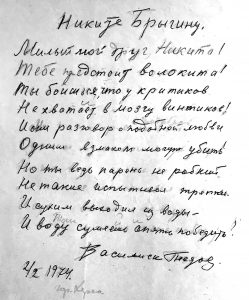 Никите Брыгину.
Милый мой друг Никита!
Тебе предстоит волокита!
Ты боишься, что у критиков
Не хватает в мозгу винтиков!
И они разговор о любви
Одним взмахом могут убить!
Но ты ведь парень не робкий,
Не такие испытывал тропки.
И сухим выходил из воды —
И воду сумеешь опять победить!
Василиск Гнедов
2/X 1974.
гор. Херсон